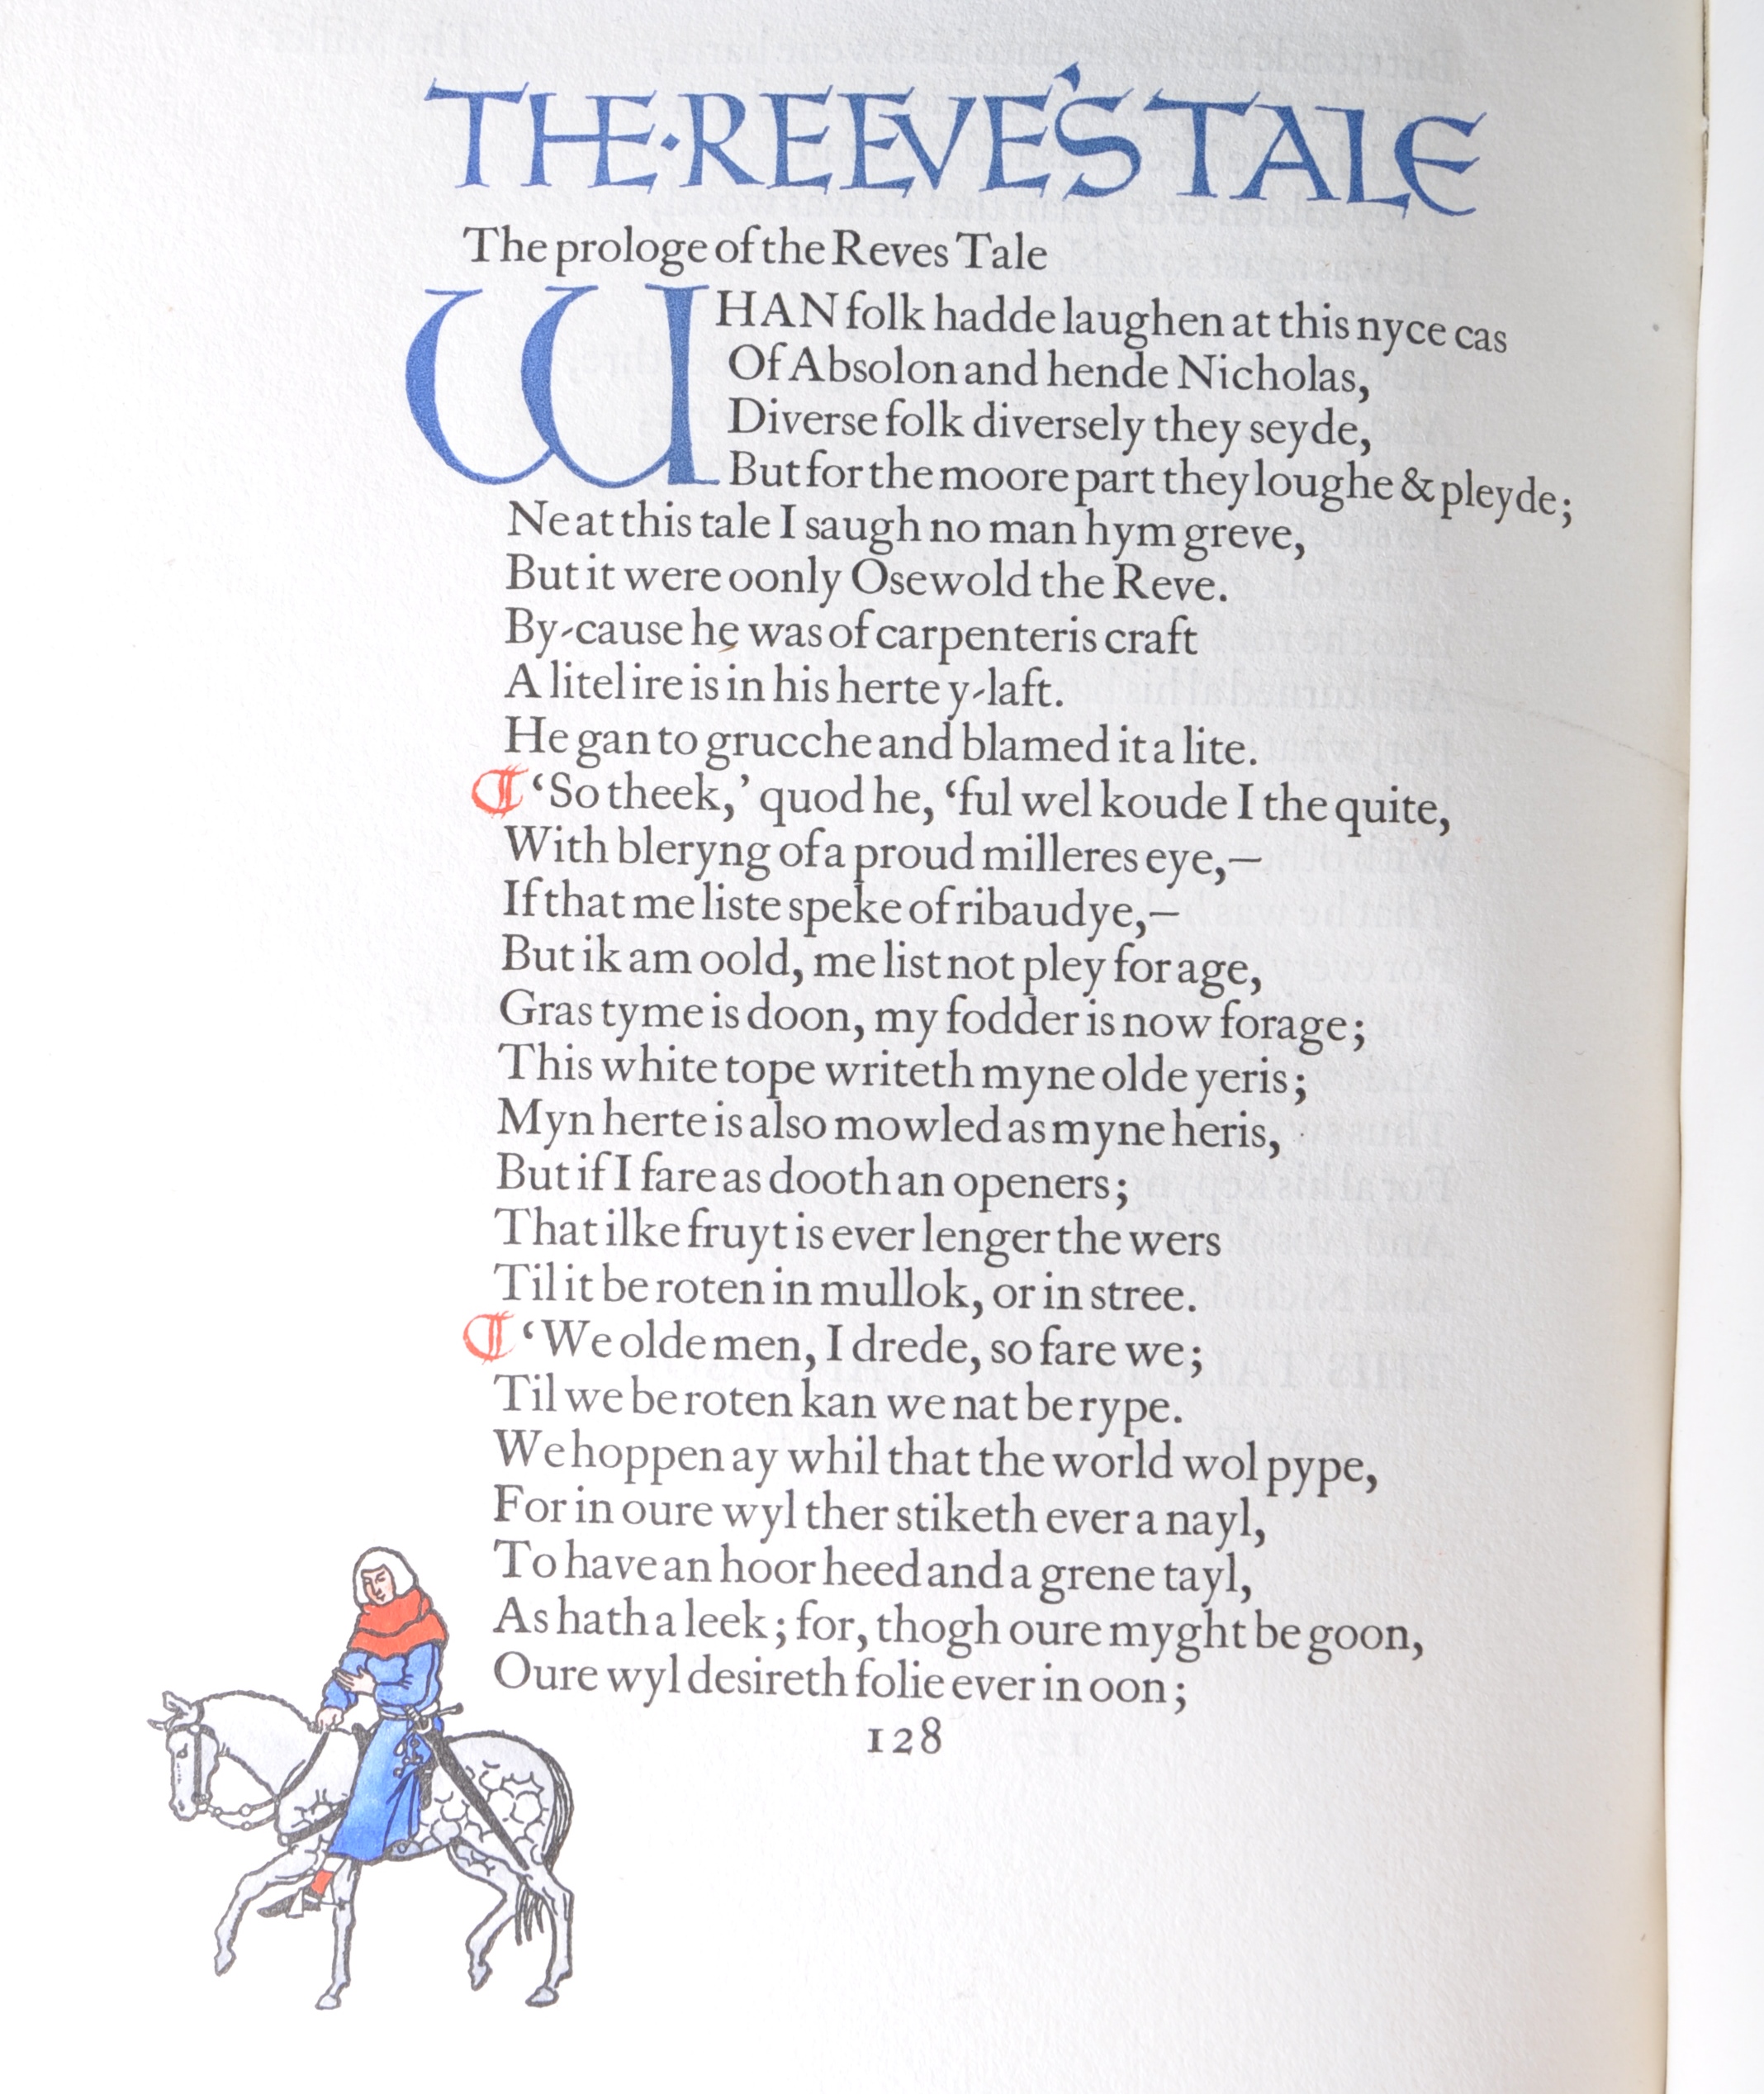 THE·REEVE'S TALE
The prologe of the Reves Tale
WHAN folk hadde laughen at this nyce cas
Of Absolon and hende Nicholas,
Diverse folk diversely they seyde,
But for the moore part they loughe & pleyde;
Ne at this tale I saugh no man hym greve,
But it were oonly Osewold the Reve.
By-cause he was of carpenteris craft
A litel ire is in his herte y-laft.
He gan to grucche and blamed it a lite.
¶ ‘So theek,’ quod he, ‘ful wel koude I the quite,
With bleryng of a proud milleres eye,—
If that me liste speke of ribaudye,—
But ik am oold, me list not pley for age,
Gras tyme is doon, my fodder is now forage;
This white tope writeth myne olde yeris;
Myn herte is also mowled as myne heris,
But if I fare as dooth an openers;
That ilke fruyt is ever lenger the wers
Til it be roten in mullok, or in stree.
¶ ‘We olde men, I drede, so fare we;
Til we be roten kan we nat be rype.
We hoppen ay whil that the world wol pype,
For in oure wyl ther stiketh ever a nayl,
To have an hoor heed and a grene tayl,
As hath a leek; for, thogh oure myght be goon,
Oure wyl desireth folie ever in oon;
128